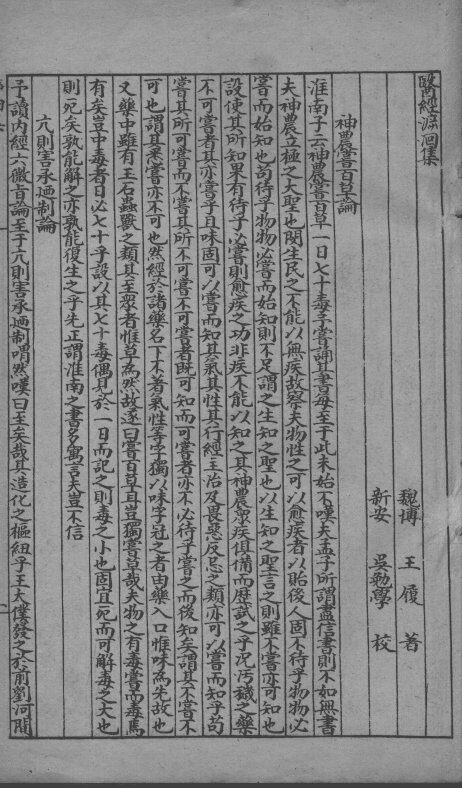 醫經溯洄集
魏博 王履 著
新安 吳勉學 校
神農嘗百草論
淮南子云神農嘗百草一日七十毒予嘗誦其書每至于此未始不嘆夫孟子所謂盡信書則不如無書
夫神農立極之大聖也閔生民之不能以無疾故察夫物性之可以愈疾者以貽後人固不待乎物物必
嘗而始知也苟待乎物物必嘗而始知則不足謂之生知之聖也以生知之聖言之則雖不嘗亦可知也
設使其所知果有待乎必嘗則愈疾之功非疾不能以知之其神農眾疾俱備而歷試之乎況污穢之藥
不可嘗者其亦嘗乎且味固可以嘗而知其氣其性其行經主治及畏惡反忌之類亦可以嘗而知乎苟
嘗其所可嘗而不嘗其所不可嘗不可嘗者既可知而可嘗者亦不必待乎嘗之而後知矣謂其不嘗不
可也謂其悉嘗亦不可也然經於諸藥名下不著氣性等字獨以味字冠之者由藥入口惟味為先故也
又藥中雖有玉石蟲獸之類其至眾者惟草為然故遂曰嘗百草耳豈獨嘗草哉夫物之有毒嘗而毒焉
有矣豈中毒者日必七十乎設以其七十毒偶見於一日而記之則毒之小也固宜死而可解毒之大也
則死矣孰能解之亦孰能復生之乎先正謂淮南之書多寓言夫豈不信
亢則害承廼制論
予讀內經六微旨論至于亢則害承廼制喟然嘆曰至矣哉其造化之樞紐乎王太僕發之於前劉河間